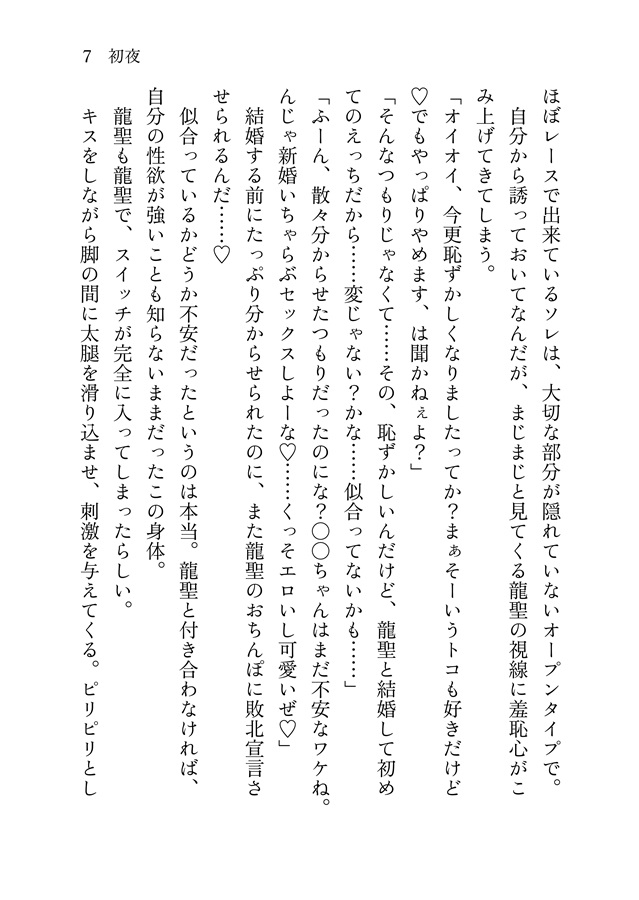 7　初夜
ほぼレースで出来ているソレは、大切な部分が隠れていないオープンタイプで。
　自分から誘っておいてなんだが、まじまじと見てくる龍聖の視線に羞恥心がこ
み上げてきてしまう。
「オイオイ、今更恥ずかしくなりましたってか？まぁそーいうトコも好きだけど
♡でもやっぱりやめます、は聞かねぇよ？」
「そんなつもりじゃなくて……その、恥ずかしいんだけど、龍聖と結婚して初め
てのえっちだから……変じゃない？かな……似合ってないかも……」
「ふーん、散々分からせたつもりだったのにな？〇〇ちゃんはまだ不安なワケね。
んじゃ新婚いちゃらぶセックスしよーな♡……くっそエロいし可愛いぜ♡」
　結婚する前にたっぷり分からせられたのに、また龍聖のおちんぽに敗北宣言さ
せられるんだ……♡
　似合っているかどうか不安だったというのは本当。龍聖と付き合わなければ、
自分の性欲が強いことも知らないままだったこの身体。
　龍聖も龍聖で、スイッチが完全に入ってしまったらしい。
　キスをしながら脚の間に太腿を滑り込ませ、刺激を与えてくる。ピリピリとし